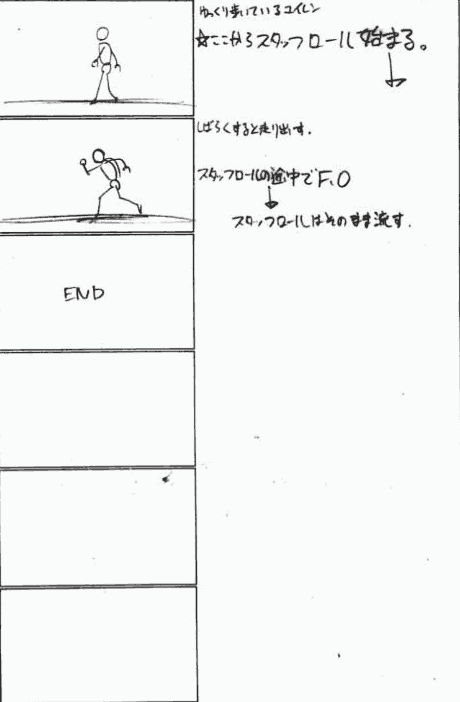 ゆっくり歩いているユイレン
☆ここからスタッフロール始まる。
しばらくすると走り出す.
スタッフロールの途中でF.O
スタッフロールはそのまま流す.
END